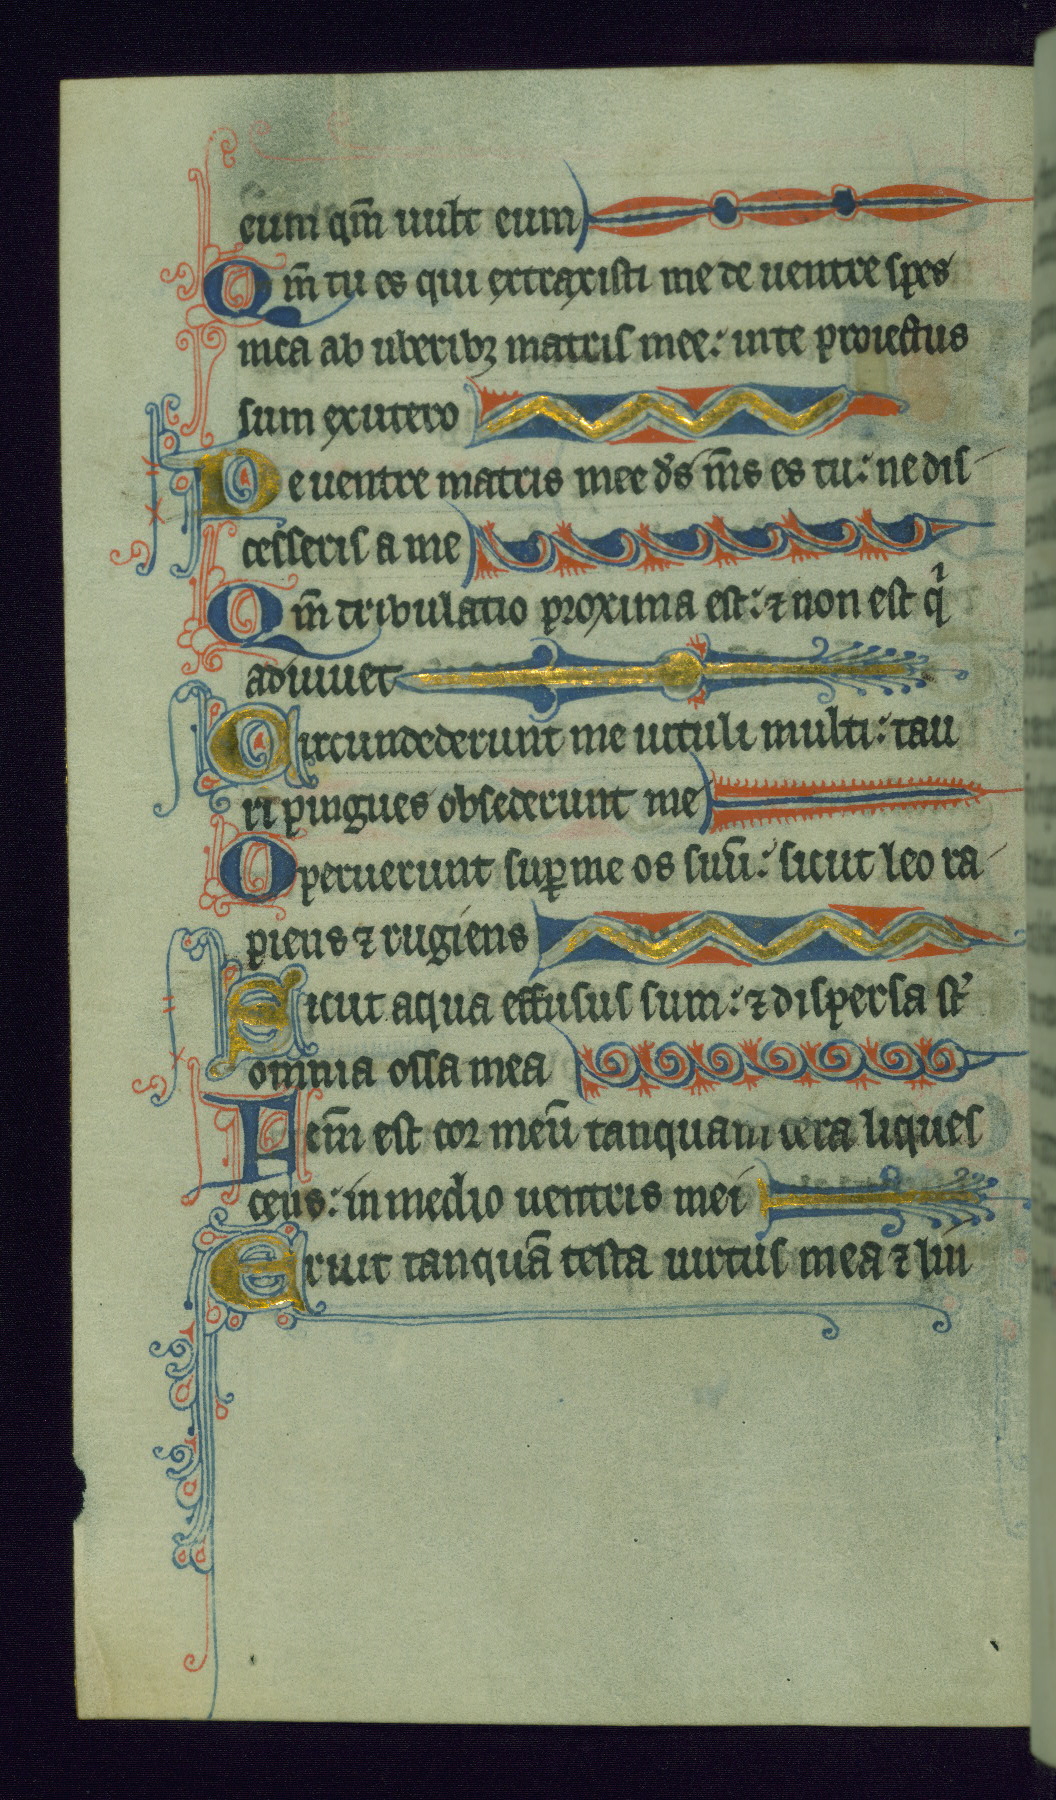 eum qm̄ uult eum
Qm̄ tu es qui extraxisti me de uentre spes
mea ab uberibꝫ matris mee: in te proiectus
sum ex utero
De uentre matris mee ds̄ ms̄ es tu: ne dis
cesseris a me
Qm̄ tribulatio proxima est: ⁊ non est qͥ
adiuuet
Circundederunt me uituli multi: tau
ri pingues obsederunt me
Operuerunt suꝑ me os suū: sicut leo ra
piens ⁊ rugiens
Sicut aqua effusus sum: ⁊ dispersa st̄
omnia ossa mea
Fcm̄ est cor meū tanquam cera liques
cens: in medio uentris mei
Aruit tanquā testa uirtus mea ⁊ lin